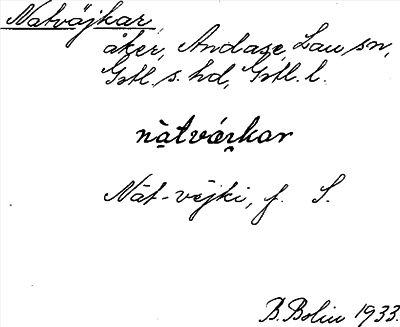 Natväjkar
åker, Andase, Lau sn,
Gotl. s. hd, Gotl. l.
nàtvǽi̯kar
Nät-vejki, f. S.
B. Bolin 1933.